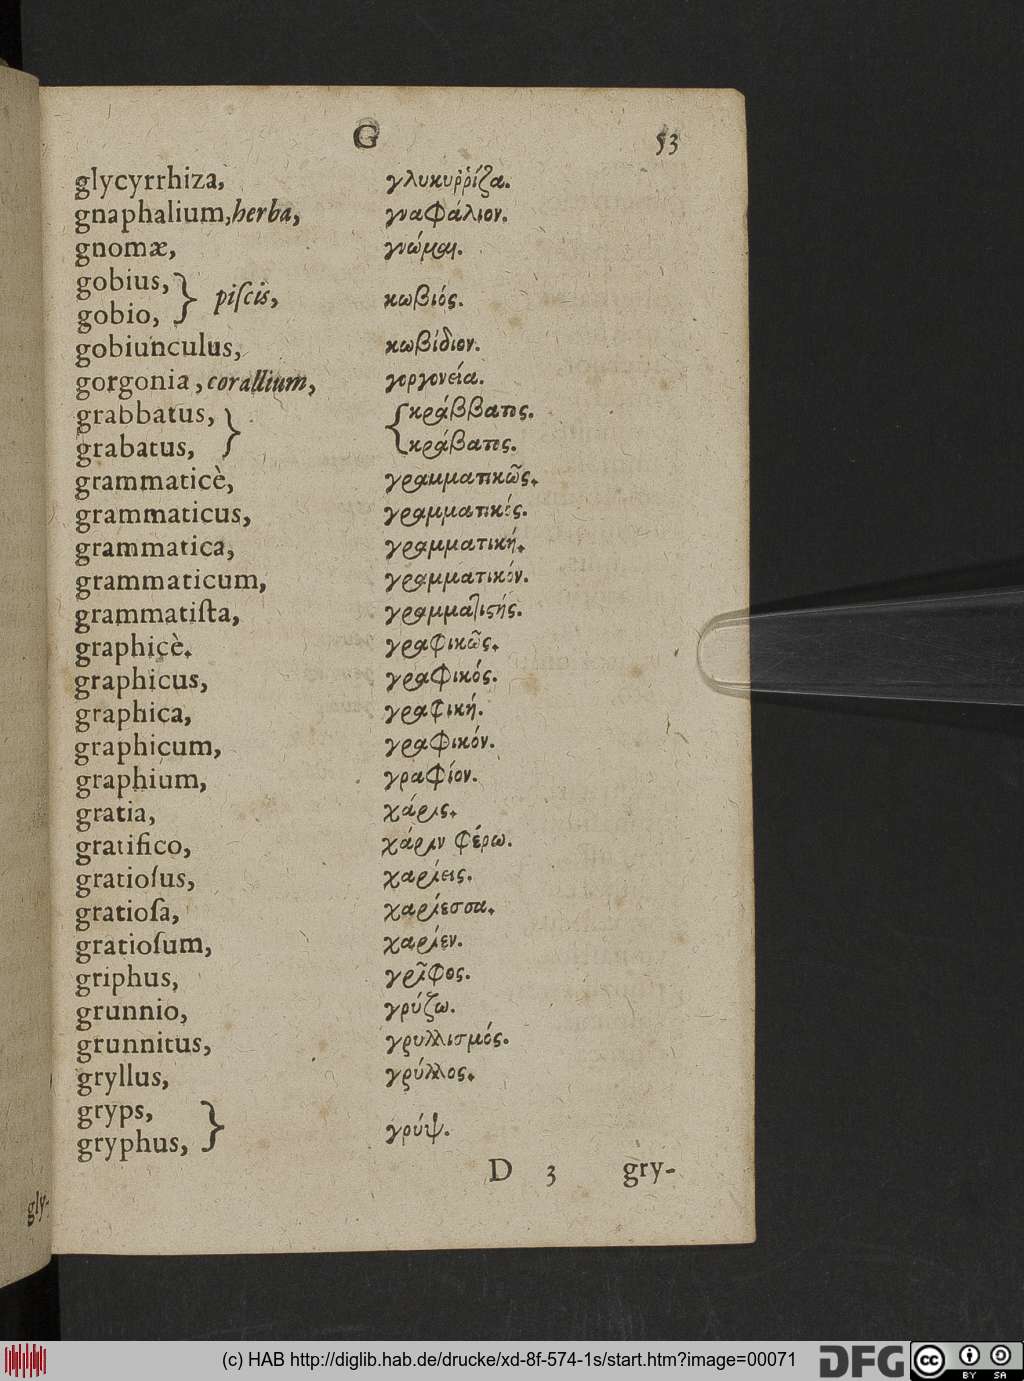 G 53
glycyrrhiza, γλυκυῤῥίζα.
gnaphalium, herba, γναφάλιον.
gnomæ, γνώμαι.
gobius,
gobio, } piſcis, κωβιός.
gobiunculus, κωβίδιον.
gorgonia, corallium, γοργονεία.
grabbatus, { κράββατος.
grabatus, } κράβατος.
grammaticè, γραμματικῶς.
grammaticus, γραμματικός.
grammatica, γραμματική.
grammaticum, γραμματικόν.
grammatiſta, γραμματιϛής.
graphicè. γραφικῶς.
graphicus, γραφικός.
graphica, γραφική.
graphicum, γραφικόν.
graphium, γραφίον.
gratia, χάρις.
gratifico, χάριν φέρω.
gratioſus, χαρίεις.
gratioſa, χαρίεσσα.
gratioſum, χαρίεν.
griphus, γρῖφος.
grunnio, γρύζω.
grunnitus, γρυλλισμός.
gryllus, γρύλλος.
gryps,
gryphus, } γρύψ.
D 3 gry-
gly-
(c) HAB http://diglib.hab.de/drucke/xd-8f-574-1s/start.htm?image=00071
DFG
cc BY SA